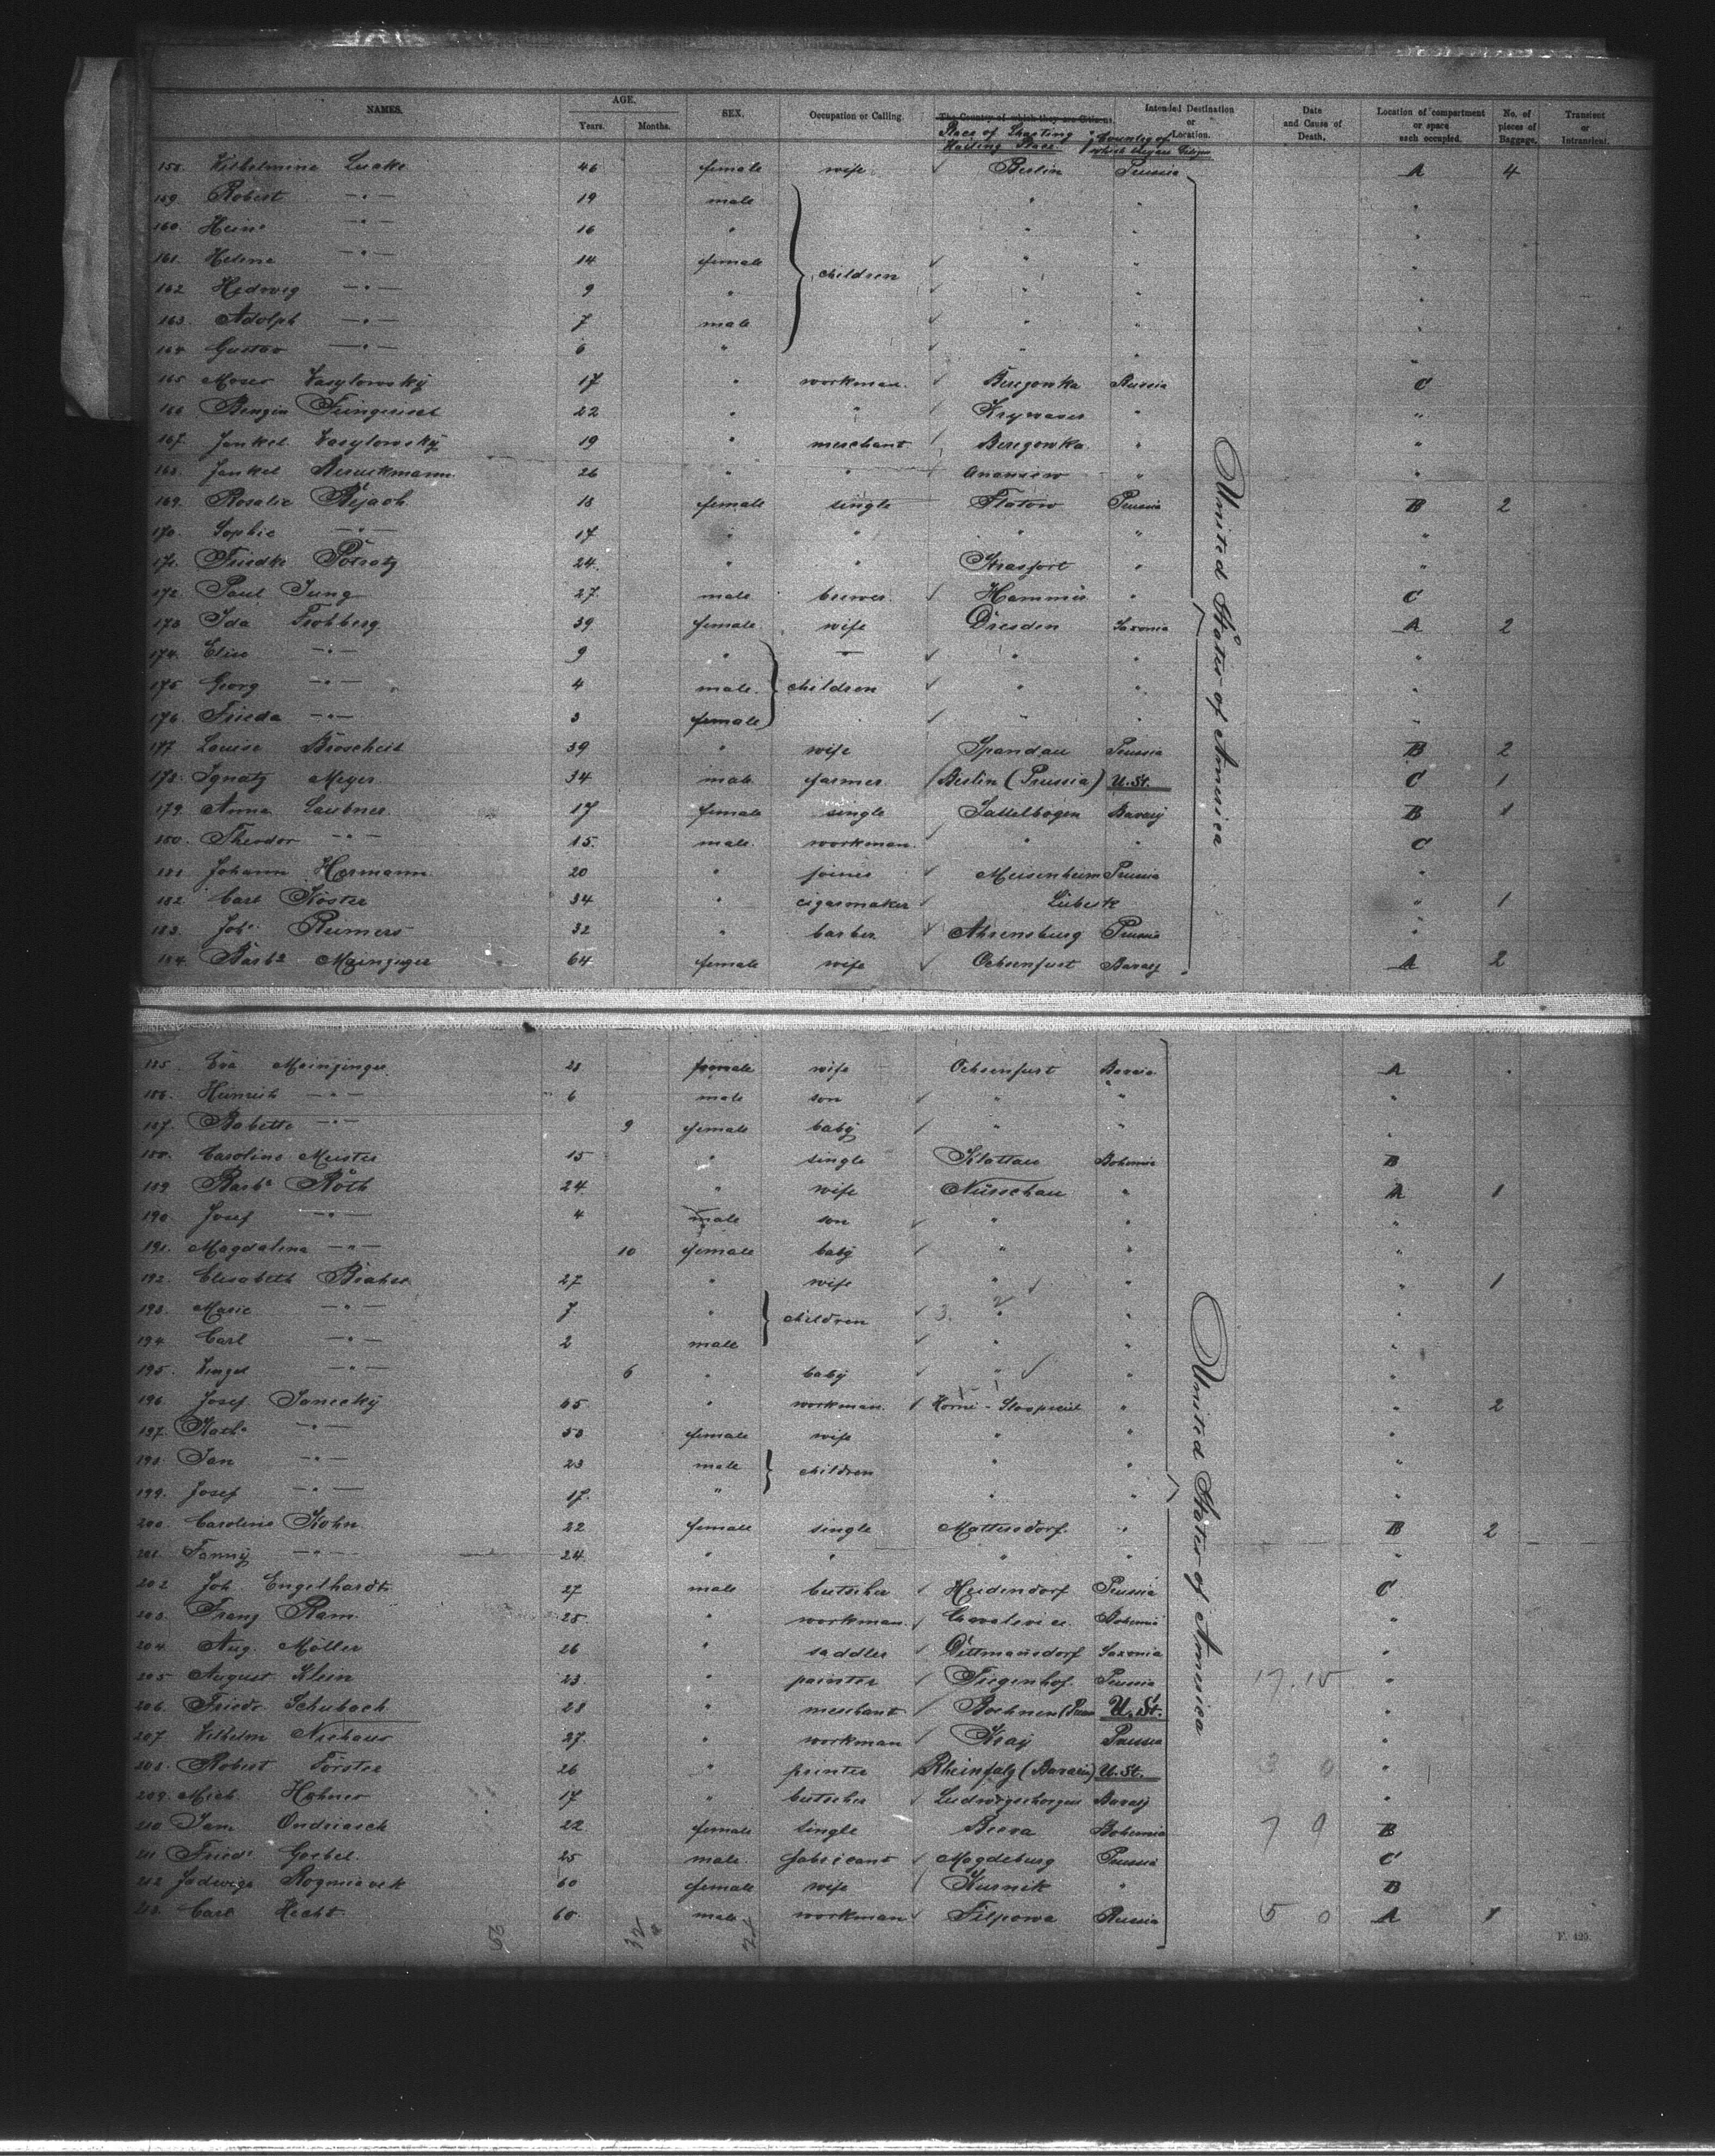 NAMES. AGE. SEX. Occupation or Calling. The Country of which they are Citizens. Intended Destination or Location. Date and Cause of Death. Location of compartment or space each occupied. No. of pieces of Baggage. Transient or Intransient.
Years. Months. Place of Starting Country of
158. Wilhelmine 46 female wife Berlin Prussia A 4
159. Robert —"— 19 male " " "
160. Heinr —"— 16 " " " "
161. Helene —"— 14 female children " " "
162 Hedwig —"— 9 " " " "
163. Adolph —"— 7 male " " "
164 Gustav —"— 6 " " " "
165 Moses Wasylowsky 17 " workman Beregowka Russia C
166 22 " " "
167. Jankel Wasylowsky 19 " merchant Beregowka " "
168. Jankel 26 " " Ananiew " "
169. Rosalie Bejach 18 female single Flatow Prussia B 2
170. Sophie —"— 17 " " " " "
171. 24. " " " "
172. Paul Jung 27. male brewer. Hammer " C
173 Ida Frohberg 39 female wife Dresden Saxonia A 2
174. Elise —"— 9 " — " " "
175 Georg —"— 4 male. children " " "
176. Frieda —"— 3 female " " "
177 Louise 39 " wife Spandau Prussia B 2
178. Ignatz Meyer 34 male farmer Berlin (Prussia) U. St. C 1
179. Anna Laubner 17 female single Sattelbogen Bavary B 1
180. Theodor —"— 15. male. workman. " " C
181 Johann Hermann 20 " joiner Meisenheim Prussia "
182 Carl Köster 34 " cigarmaker Lübeck " 1
183. Joh. Reimers 32 " barber Ahrensburg Prussia "
184. Barba 64 female wife Ochsenfurt Bavary A 2
United States of America
185. Eva Meinzinger 28 female wife Ochsenfurt Bavaria A "
186. Heinrich —"— 6 male son " " "
187. Babette —"— 9 female baby " " "
188. Caroline Meister 15 " single Klattau Bohemia B
189 Barba Röth 24 " wife " A 1
190. Josef —"— 4 male son " " "
191. Magdalena —"— 10 female baby " " "
192. Elisabeth 27 " wife " " " 1
193. Marie —"— 7. " children 3. 2 " " "
194. Carl —"— 2 male " " "
195. Wenzel —"— 6 " baby " " "
196. Josef Janecky 65 " workman. " " 2
197. Kath. —"— 53 female wife " " "
198. Jan —"— 23 male children " " "
199. Josef —"— 17. " " " "
200. Caroline Kohn 22 female single Mattersdorf. " B 2
201. Fanny —"— 24 " " " " "
202 Joh. Engelhardt 27 male butscher Heidendorf Prussia C
203. Franz Ram 25. " workman Bohemia "
204. Aug. Möller 26 " saddler Dittmansdorf Saxonia "
205 August Klein 23. " painter Tiegenhof. Prussia 17. 15 "
206. Friedr. Schubach 28 " merchant U. St. "
207. Wilhelm Niehaus 27. " workman Kray Prussia "
208. Robert Förster 26 " printer Rheinpfalz (Bavaria) U. St. 3 0 "
209. Mich. Hahner 17 " butscher Bavary "
210 22 female single Bohemia 7 9 B
211 Friedr. Goebel 25 male. fabricant Magdeburg Prussia C
212 Jadwiga 60 female wife Kurnik " B
213. Carl Hecht 60. male workman Filipowa Russia 5 0 A 1
United States of America
F. 425.